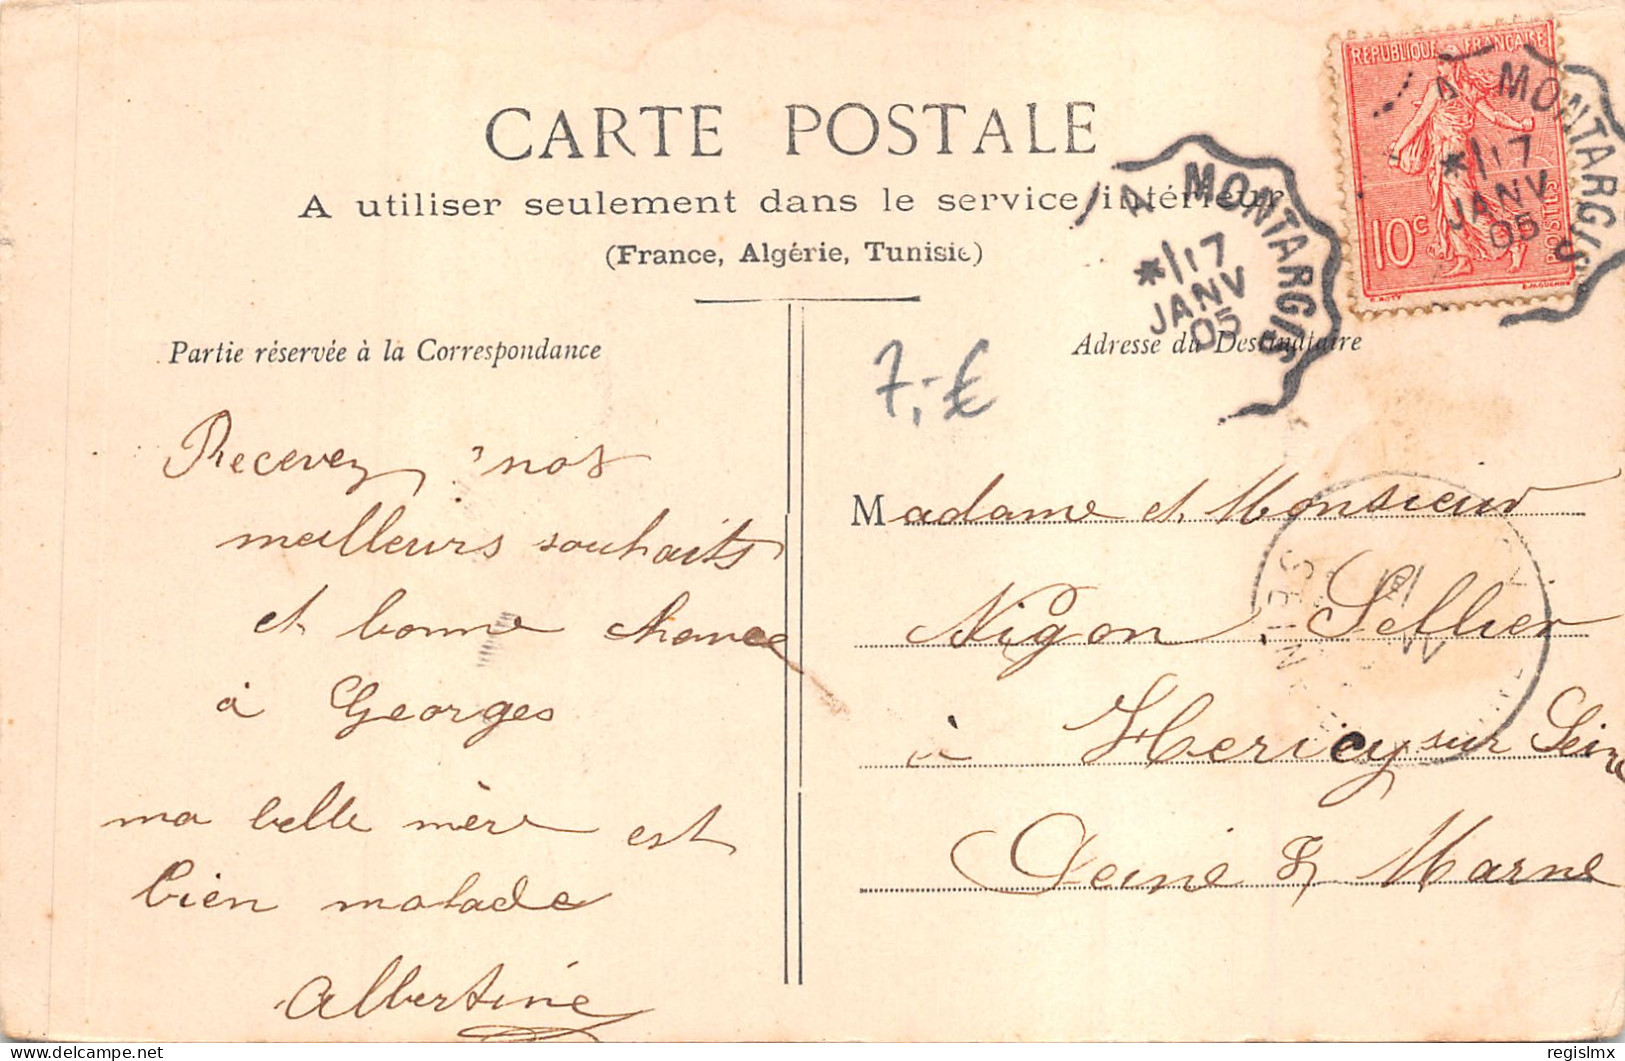 CARTE POSTALE
A utiliser seulement dans le service intérieur
(France, Algérie, Tunisie)
REPUBLIQUE FRANÇAISE
POSTES
10c
O. ROTY
A MONTARGIS
* 17
JANV
05
A MONTARGIS
* 17
JANV
05
Partie réservée à la Correspondance
Recevez nos
meilleurs souhaits
et bonne chance
à Georges
ma belle mère est
bien malade
Albertine
7,-€
Adresse du Destinataire
Madame et Monsieur
Nigon Sellier
à Hericy sur Seine
Seine & Marne
SEIN
www.delcampe.net
regislmx